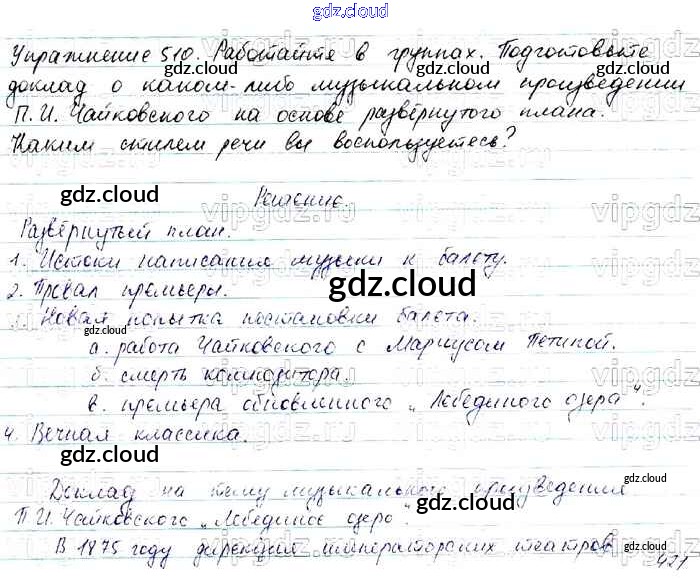 gdz.cloud
Упражнение 510. Работайте в группах. Подготовьте
доклад о каком-либо музыкальном произведении
П.И. Чайковского на основе развёрнутого плана.
Каким стилем речи вы воспользуетесь?
Решение.
Развёрнутый план.
1. Истоки написания музыки к балету.
2. Провал премьеры.
3. Новая попытка постановки балета.
а. работа Чайковского с Мариусом Петипой.
б. смерть композитора.
в. премьера обновленного „Лебединого озера".
4. Вечная классика.
Доклад на тему музыкального произведения
П.И. Чайковского „Лебединое озеро".
В 1875 году дирекция императорских театров
421